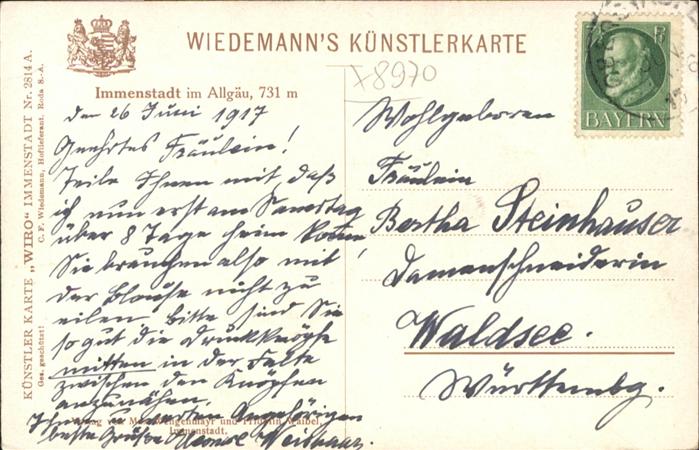 WIEDEMANN'S KÜNSTLERKARTE
Immenstadt im Allgäu, 731 m
+8970
BAYERN
den 26 Juni 1917
Geehrtes Fräulein!
Teile Ihnen mit, daß
ich nun erst am Samstag
über 8 Tage heim komme!
Sie brauchen also mit
der Blouse nicht zu
eilen. Bitte sind Sie
so gut die Druckknöpfe
mitten in der Falte
zwischen den Knöpfen
anzunähen.
Ihnen u. werten Angehörigen
beste Grüße
Wohlgeboren
Fräulein
Bertha Steinhauser
Damenschneiderin
Waldsee.
Württembg.
KÜNSTLER KARTE „WIRO“ IMMENSTADT Nr. 2814 A.
Ges. geschützt! C. F. Wiedemann, Hoflieferant, Roda S.-A.
Verlag von Max Wengenmayr und Fridolin Waibel,
Immenstadt.